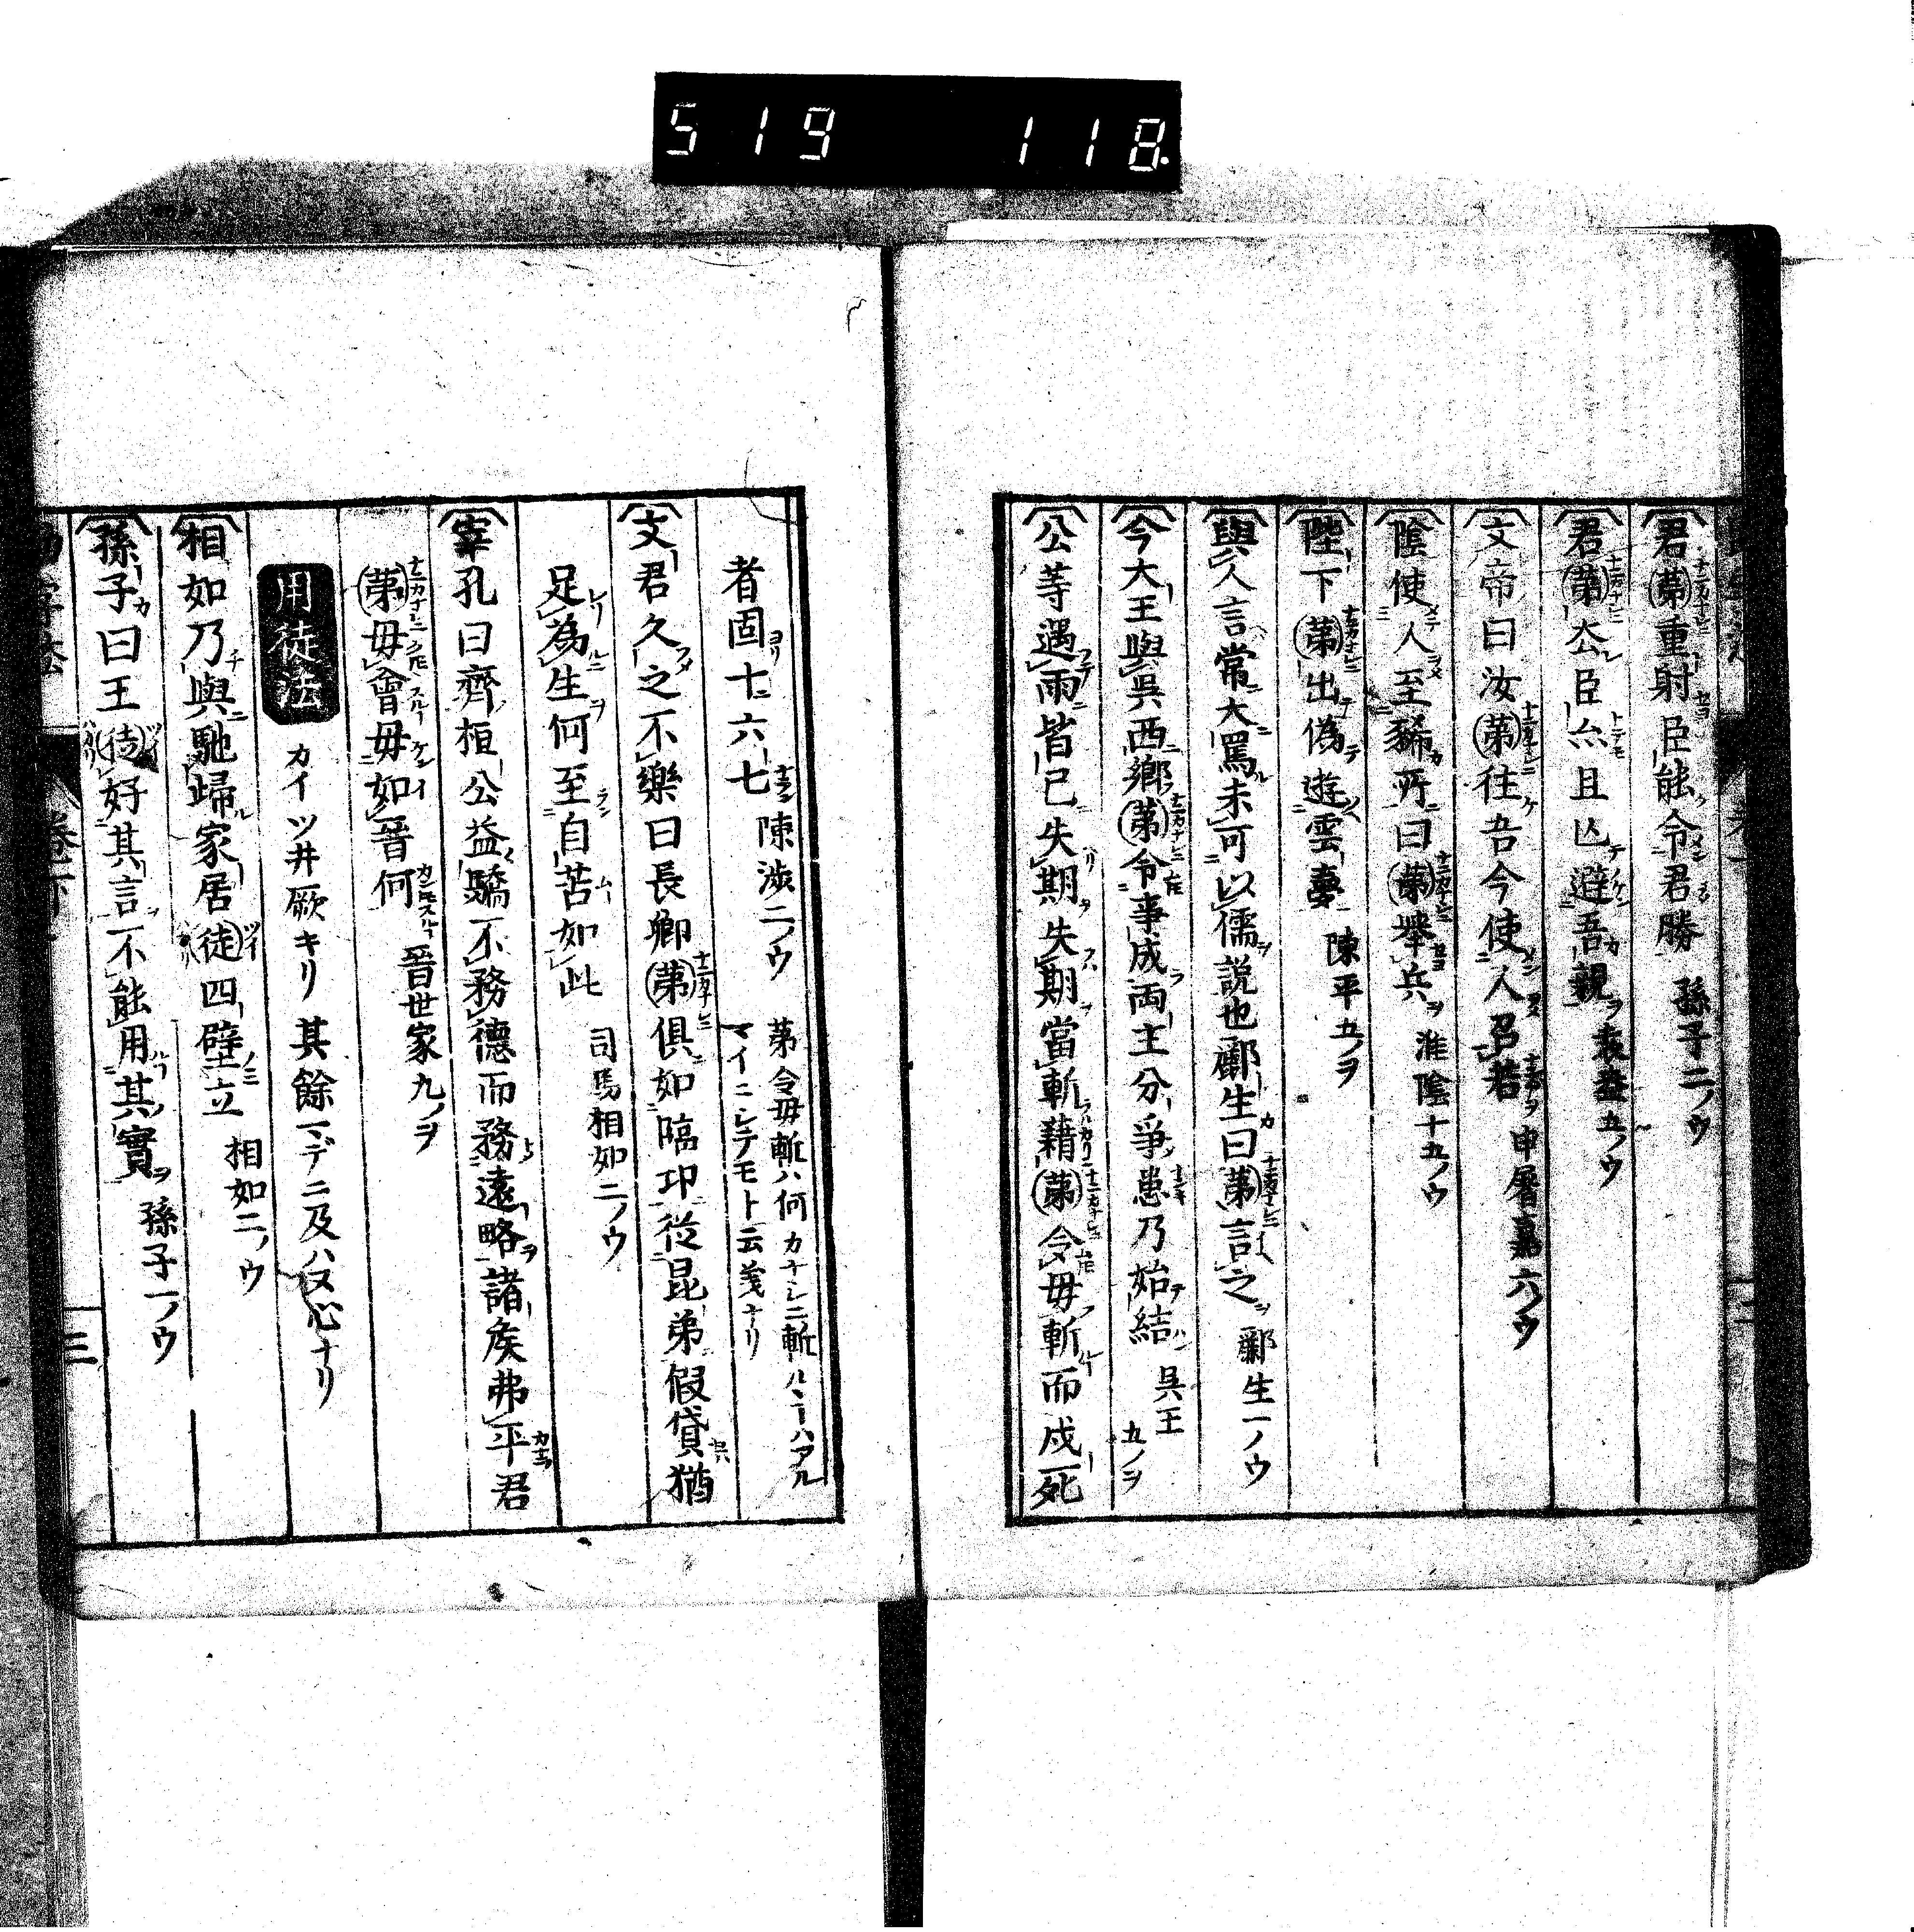 519 118
君第重射臣能令君勝 孫子二ノウ
君第去臣亦且亾避吾親 袁盎五ノウ
文帝曰汝第往吾今使人召若 申屠嘉六ノウ
陰使人至豨所曰第擧兵 淮陰十五ノウ
陛下第出偽遊雲夢 陳平五ノヲ
與人言常大罵未可以儒説也酈生曰第言之 酈生一ノウ
今大王與呉西鄉第令事成両主分爭患乃始結 呉王九ノヲ
公等遇雨皆已失期失期當斬藉第令毋斬而戍死
者固十六七 陳渉二ノウ 第令毋斬ハ何カナシニ斬ルヽコハアル
マイニシテモト云義ナリ
文君久之不樂曰長卿第俱如臨卭從昆弟假貸猶
足為生何至自苦如此 司馬相如二ノウ
宰孔曰齊桓公益驕不務德而務遠略諸矦弗平君
第毋會毋如晉何 晉世家九ノヲ
用徒法 カイツ井厥キリ其餘マデニ及ハヌ心ナリ
相如乃與馳歸家居徒四壁立 相如二ノウ
孫子曰王徒好其言不能用其實 孫子一ノウ
卷下
三